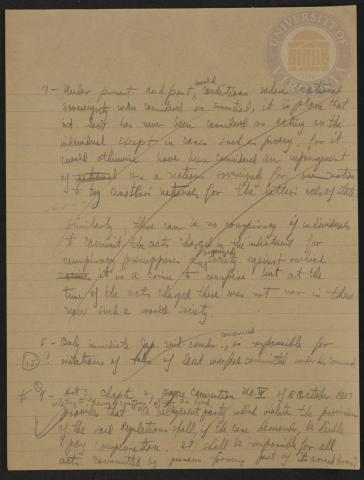 UNIVERSITY OF
7 - Under present and past, world conditions where national
sovereignty was considered so essential, it is plain that
int. law has never been considered as acting on the
individual except in cases such as piracy. for it
would otherwise have been considered an infringement
of on a nations sovereignty for one nation
to try another's nationals for the latter's acts of state
Similarly there can be no conspiracy of individuals
to commit the acts charged in the indictment for
conspiracy presupposes a society against which
it is a crime to conspire but at the
time of the acts charged there was not nor is there
now such a world society.
8 - Only immediate Jap. unit comdr. concerned, is responsible for
violations of laws of land warfare committed under his command
15 ?
9 - Art 3, Chapt 2, Hague Convention No. IV of 18 October 1907
provides that "A belligerent party which violates the provisions
of the said Regulations shall, if the case demands, be liable
to pay compensation. It shall be responsible for all
acts committed by persons forming part of its armed forces"